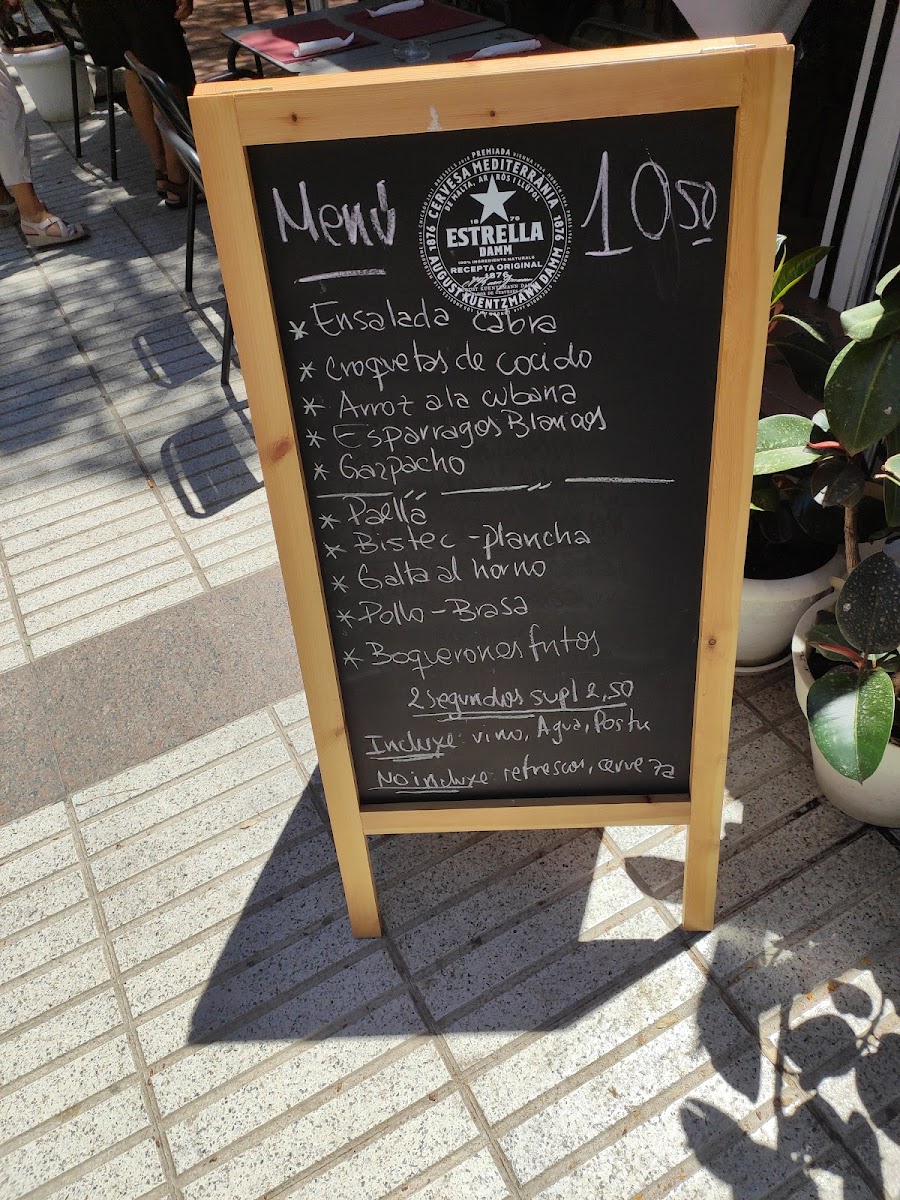 Menú
CERVESA MEDITERRÀNIA
DE MALTA, ARRÒS I LLÚPOL
1876
1876
ESTRELLA
DAMM
100% INGREDIENTS NATURALS
RECEPTA ORIGINAL
1876
AUGUST KUENTZMANN DAMM
10,50
* Ensalada cabra
* Croquetas de cocido
* Arroz a la cubana
* Esparragos Blancos
* Gazpacho
* Paella
* Bistec - plancha
* Galta al horno
* Pollo - Brasa
* Boquerones fritos
2 segundos supl 2,50
Incluxe: vino, Agua, Postre
No incluxe: refrescos, cerveza